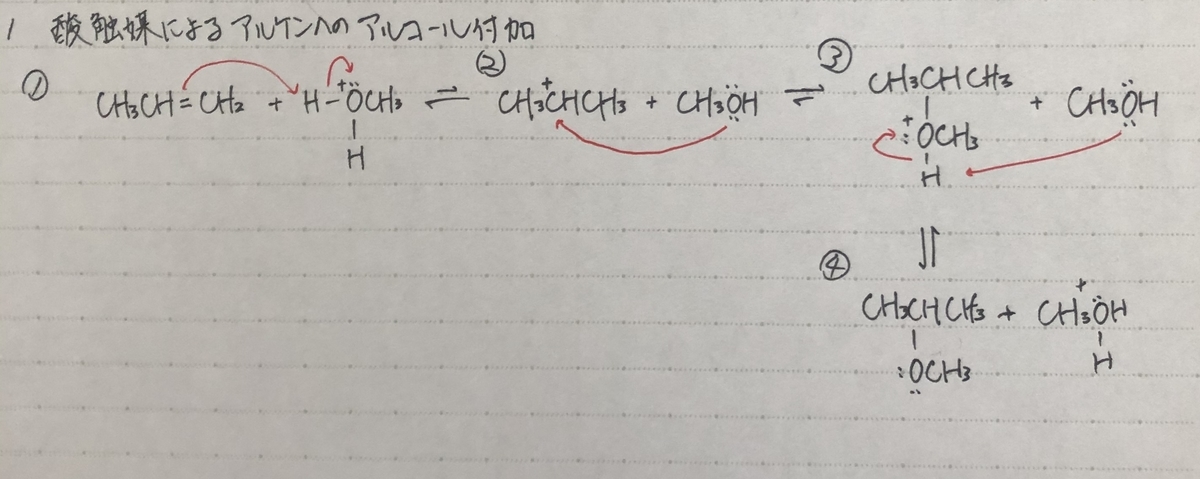 1 酸触媒によるアルケンへのアルコール付加
① CH3CH=CH2 + H-ÖCH3 ⇌ ② CH3CHCH3 + CH3ÖH ⇌ ③ CH3CHCH3 + CH3ÖH
+
H
+
:OCH3
H
④ CH3CHCH3 + CH3ÖH
+
:OCH3
H